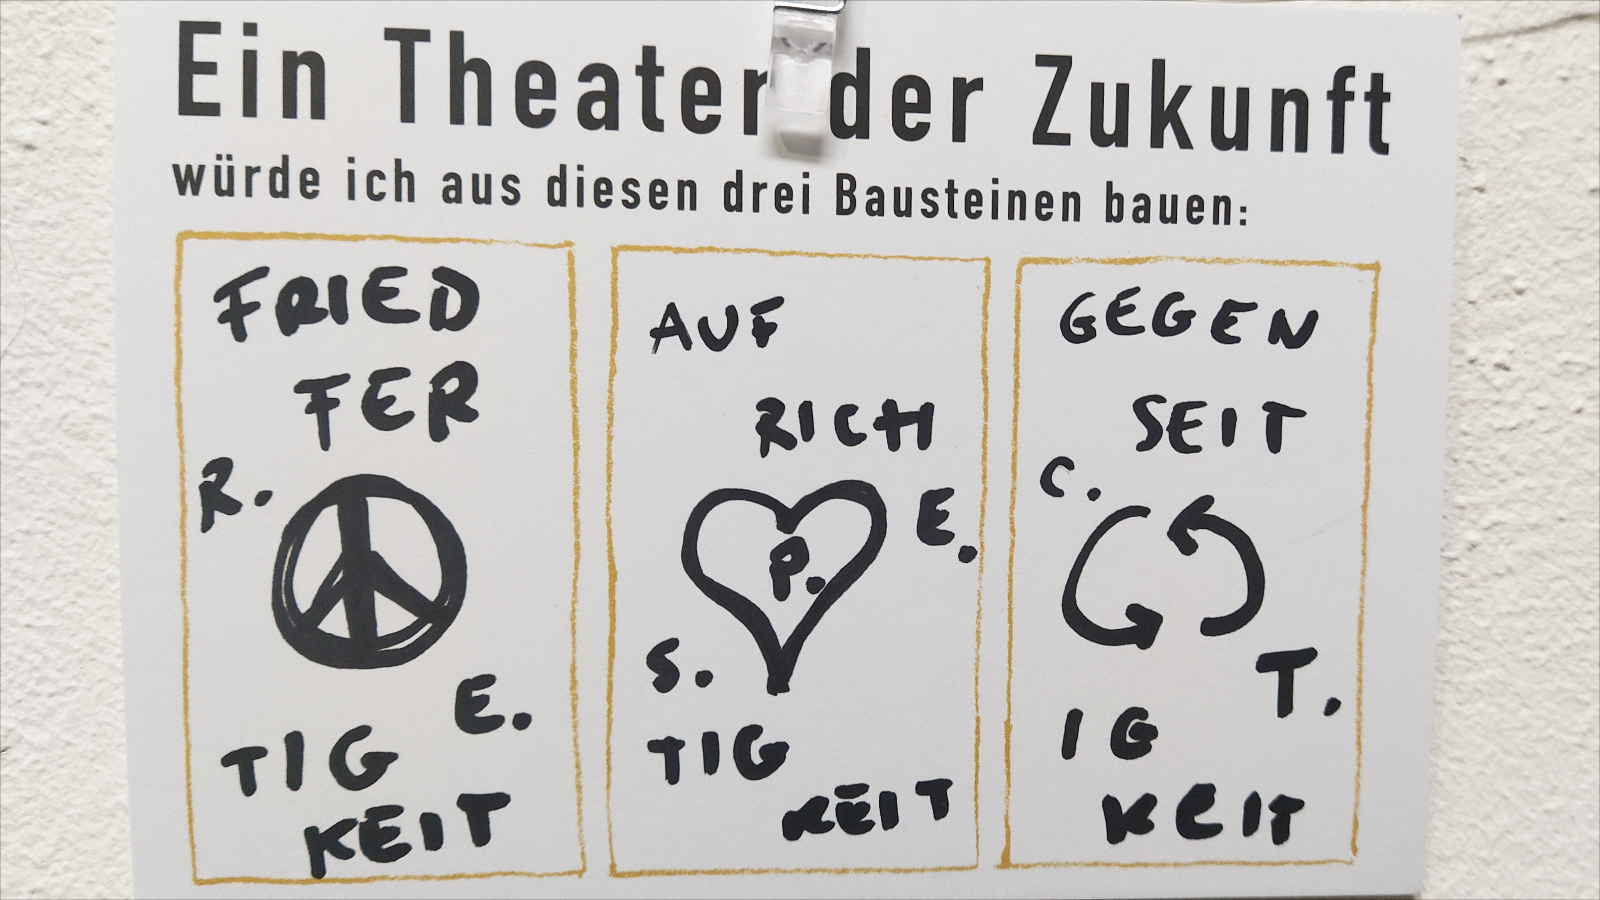 Ein Theater der Zukunft
würde ich aus diesen drei Bausteinen bauen:
FRIED
FER
R.
E.
TIG
KEIT
AUF
RICH
E.
P.
S.
TIG
KEIT
GEGEN
SEIT
C.
T.
IG
KEIT